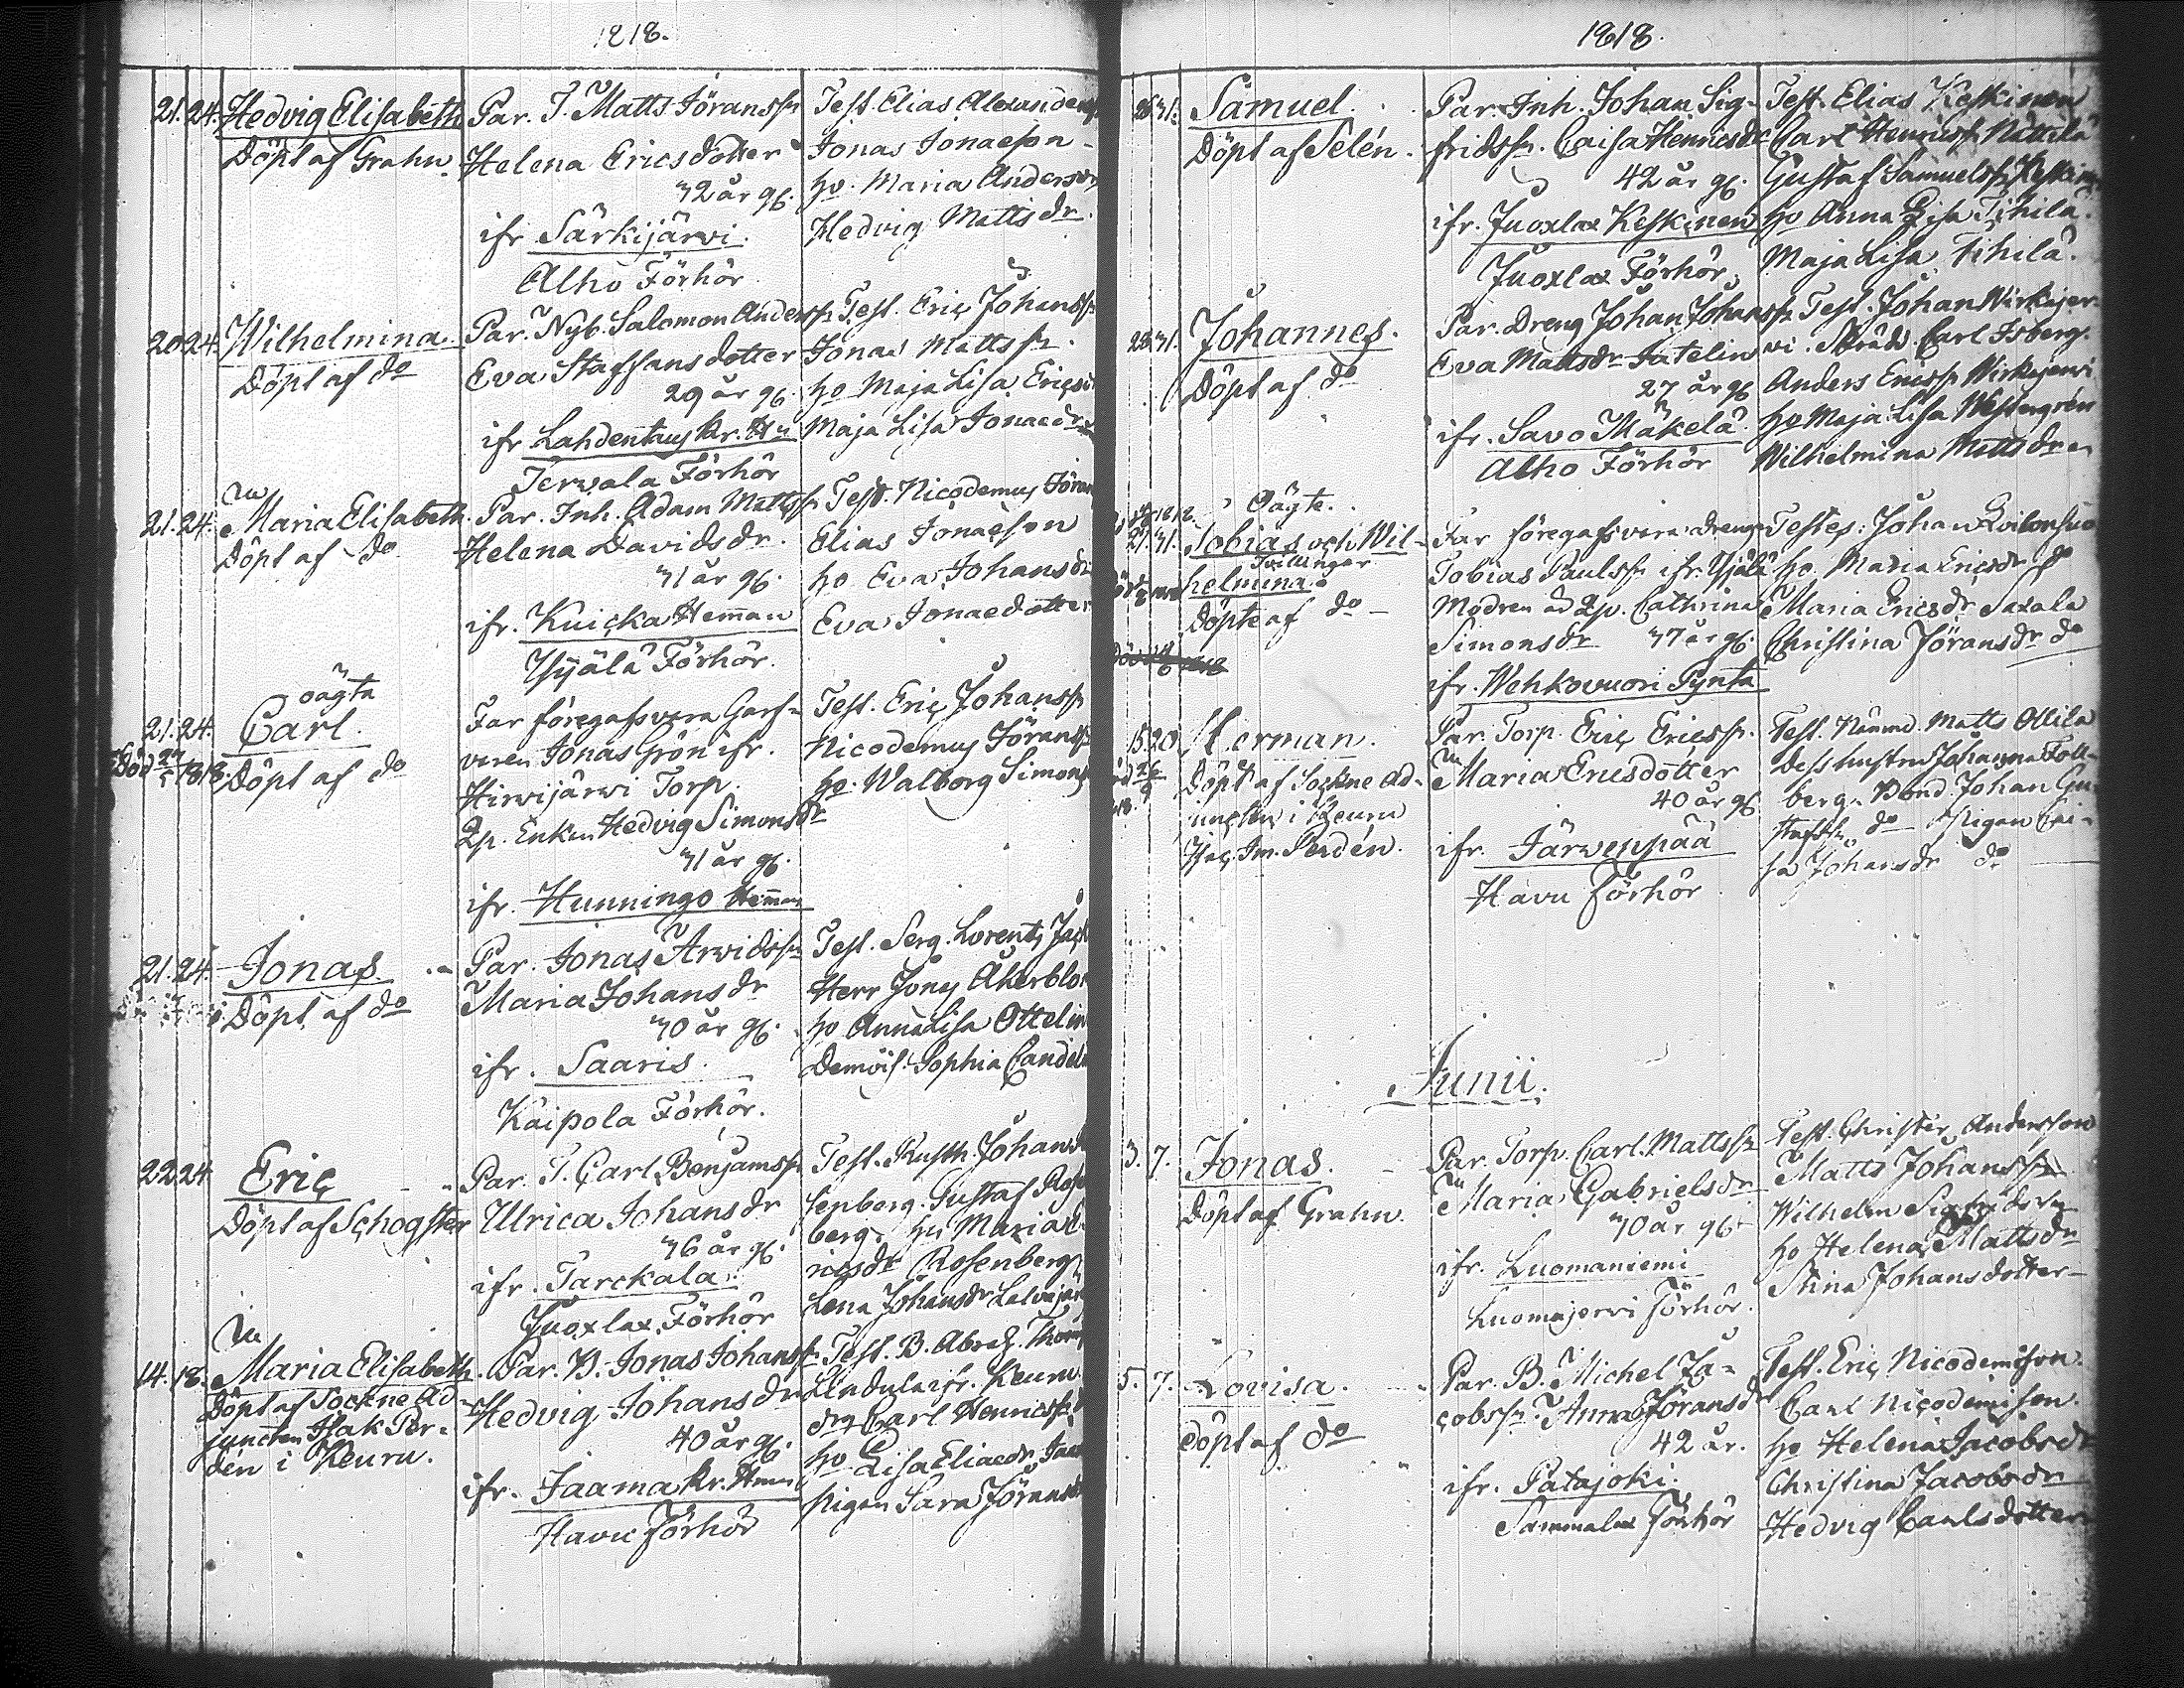 1818.
21. 24. Hedvig Elisabeth
Döpt af Grahn.
Par. T. Matts Göranss:n
Helena Ericsdotter
32 år gl.
ifr Särkijärvi.
Alho Förhör
Test. Elias Alexanders
Jonas Jonaeson
ho. Maria Anders
Hedvig Mattsdr
20. 24. Wilhelmina.
Döpt af do
Par. Nyb. Salomon Anderss:n
Eva Staffansdotter
29 år gl.
ifr Lahdentaus kr. H:n
Tervala Förhör
Test. Eric Johanss:n
Jonas Mattss:n
ho Maja Lisa Erics
Maja Lisa Jonaedr
21. 24. Maria Elisabeth.
Döpt af do
Par. Inh. Adam Mattss:n
Helena Davidsdr.
31 år gl.
ifr. Kuicka Heman
Yijälä Förhör.
Test. Nicodemus Göran
Elias Jonaeson
ho Eva Johansdr
Eva Jonaedotter
oägta
21. 24. Carl.
Död 27/5 1818. Döpt af do
Far föregafs vara Garf-
veren Jonas Grön ifr.
Hirvijärvi Torp.
Qp. Enkan Hedvig Simonsdr
31 år gl.
ifr. Hunningo Heman
Test. Eric Johanss:n
Nicodemus Göranss:n
ho. Walborg Simons
21. 24. Jonas.
Döpt af do
Par. Jonas Arvidss:n
Maria Johansdr
30 år gl.
ifr. Saaris.
Kaipola Förhör.
Test. Serg. Lorentz
Herr Jony Åkerblo
ho Anna Lisa Ottelin
Demois. Sophia Candel
22. 24 Eric
Döpt af Schogster
Par. T. Carl Benjamss:n
Ulrica Johansdr
36 år gl.
ifr. Tarckala.
Juoxlax Förhör
Test. Rusth. Johan
senberg. Gustaf Ros
berg. ho Maria E
ricsdr Rosenberg
Lena Johansdr
14. 18. Maria Elisabeth
Döpt af Sockne Ad-
juncten Isak Per-
dén i Keuru.
Par. B. Jonas Johanss:n
Hedvig Johansdr
40 år gl.
ifr. Jaama kr. Hman
Havu Förhör
Test. B. Abrah. Thom
ifr. Keuru
drg Carl Henricss:n
ho Lisa Eliaedr
Pigan Sara Görans
1818.
26. 31. Samuel.
Döpt af Selén.
Par. Inh. Johan Sig-
fridss:n. Caisa Henricsdr
42 år gl.
ifr. Juoxlax Keskinen
Juoxlax Förhör.
Test. Elias Keskinen
Carl Henricss:n Mattila
Gustaf Samuelss:n Keskin
ho Anna Lisa Tihilä.
Maja Lisa Tihilä.
28. 31. Johannes.
Döpt af do
Par. Dreng Johan Johanss:n
Eva Mattsdr Jatelin
27 år gl.
ifr. Savo Mäkelä.
Alho Förhör
Test. Johan Wirkajer-
vi. Skrädd. Carl Isberg.
Anders Ericss:n Wirkajervi
ho Maja Lisa Westergrén
Wilhelmina Mattsdr
Oägte.
27. 31. Tobias och Wil-
Tvillingar
helmina.
Döpte af do
Far föregafs vara drengen
Tobias Paulss:n ifr. Yijälä
Modren ad Qp. Cathrina
Simonsdr 37 år gl.
ifr. Wehkovuori Pynta
Testes: Johan
ho. Maria Ericsdr do
Maria Ericsdr Saxala
Christina Göransdr do
15. 20. Herman.
Döpt af Sockne Ad-
juncten i Keuru
Isac Im. Perdén.
Par. Torp. Eric Ericss:n.
Maria Ericsdotter
40 år gl.
ifr. Järvenpää
Havu Förhör
Test. Nämd. Matts Ollila
Dess hustru Johanna Toll-
berg. Bond. Johan Gu-
stafss:n do Pigan Cai-
sa Johansdr do
Junii.
3. 7. Jonas.
Döpt af Grahn.
Par. Torp. Carl Mattss:n
Maria Gabrielsdr
30 år gl.
ifr. Luomaniemi
Luomajervi Förhör.
Test. Christer Andersson
Matts Johanss:n
Wilhelm
ho Helena Mattsdr
Stina Johansdotter
5. 7. Lovisa.
döpt af do
Par. B. Michel Ja-
cobss:n. Anna Göransdr
42 år.
ifr. Patajoki.
Sammalax Förhör
Test. Eric Nicodemison.
Carl Nicodemison.
ho Helena Jacobsdr
Christina Jacobsdr
Hedvig Carlsdotter